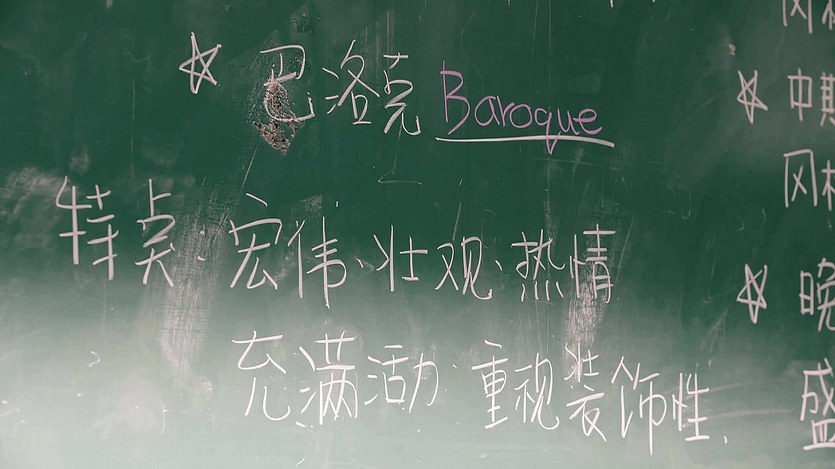 ☆ 巴洛克 Baroque
特点:宏伟、壮观、热情
充满活力、重视装饰性、
☆ 中期
☆ 晚
盛